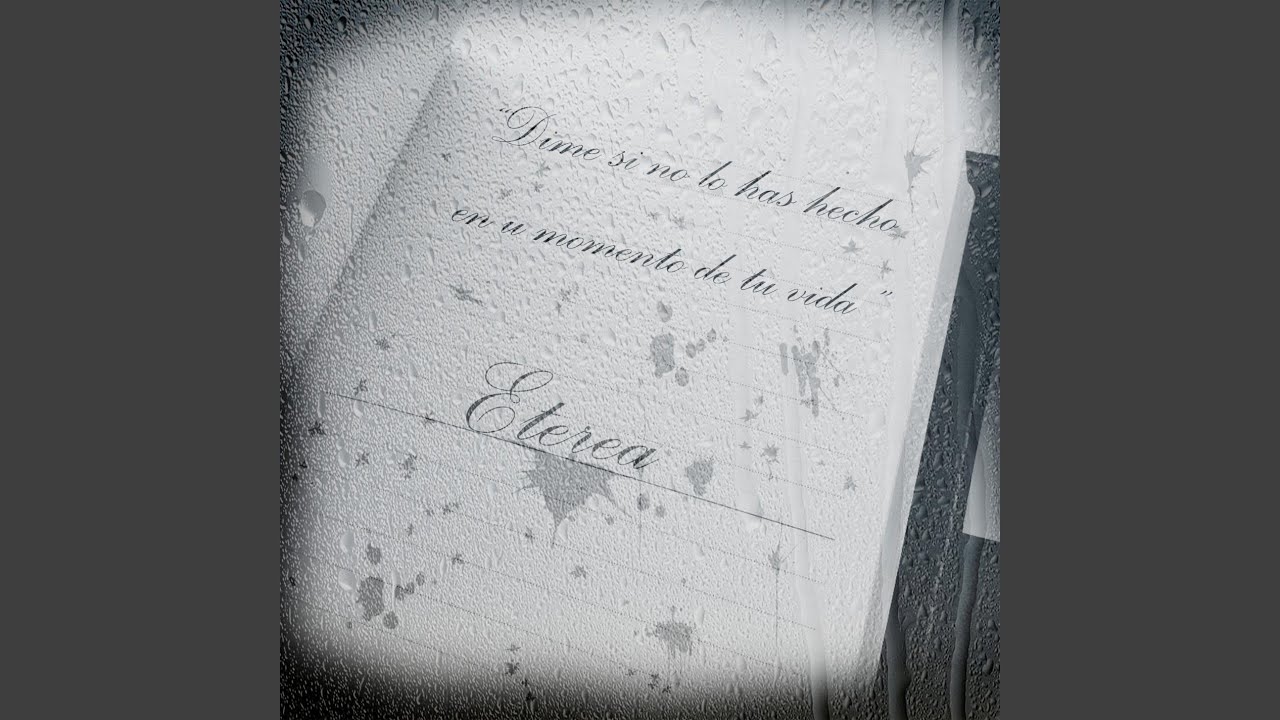 “Dime si no lo has hecho
en u momento de tu vida”
Eterea